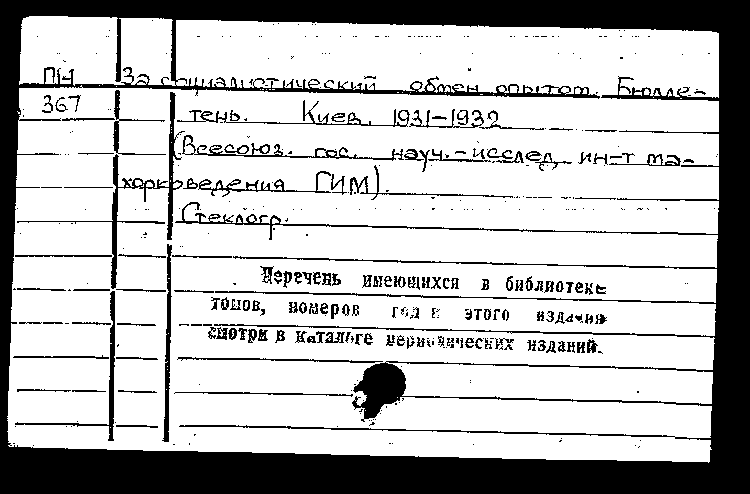 ПН За социалистический обмен опытом. Бюлле-
367 тень. Киев. 1931-1932
(Всесоюз. гос. науч.-исслед. ин-т ма-
хорковедения ГИМ).
Стеклогр.
Перечень имеющихся в библиотеке
томов, номеров год и этого издания
смотри в каталоге периодических изданий.